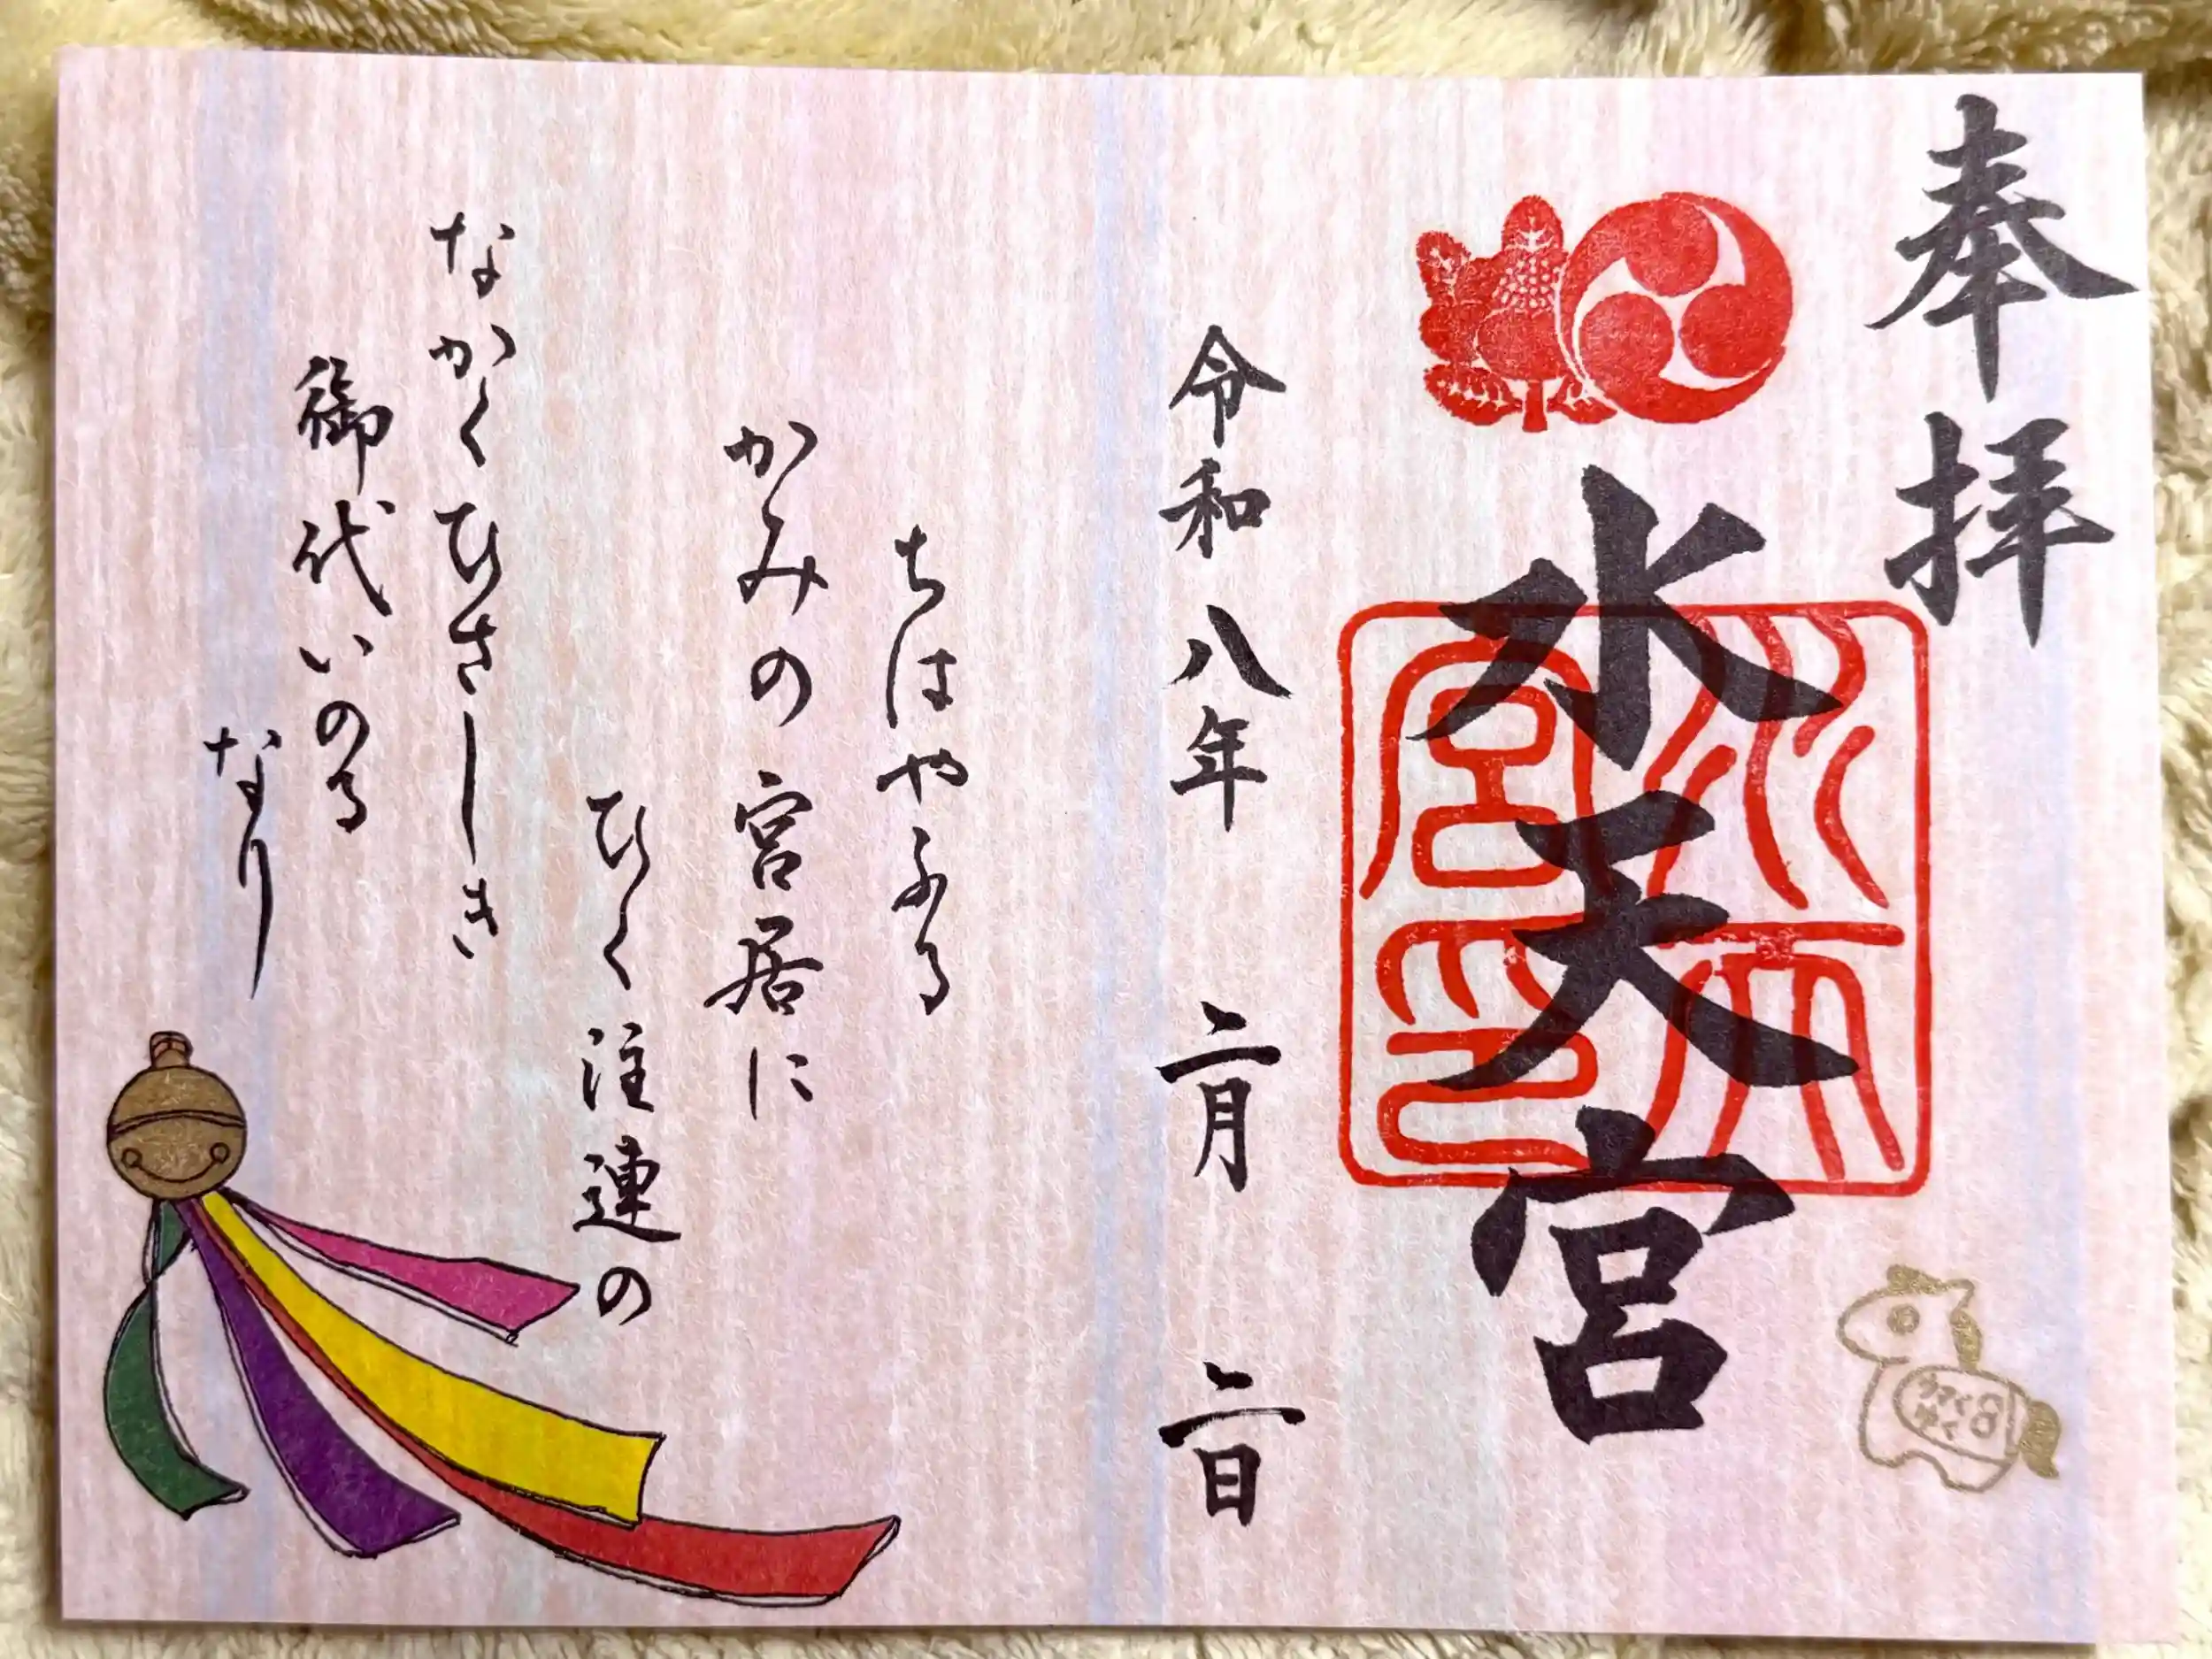 奉拝
水天宮
水天宮印
令和八年 二月 二日
ちはやふる
かみの宮居に
ひく注連の
なかくひさしき
御代いのる
なり